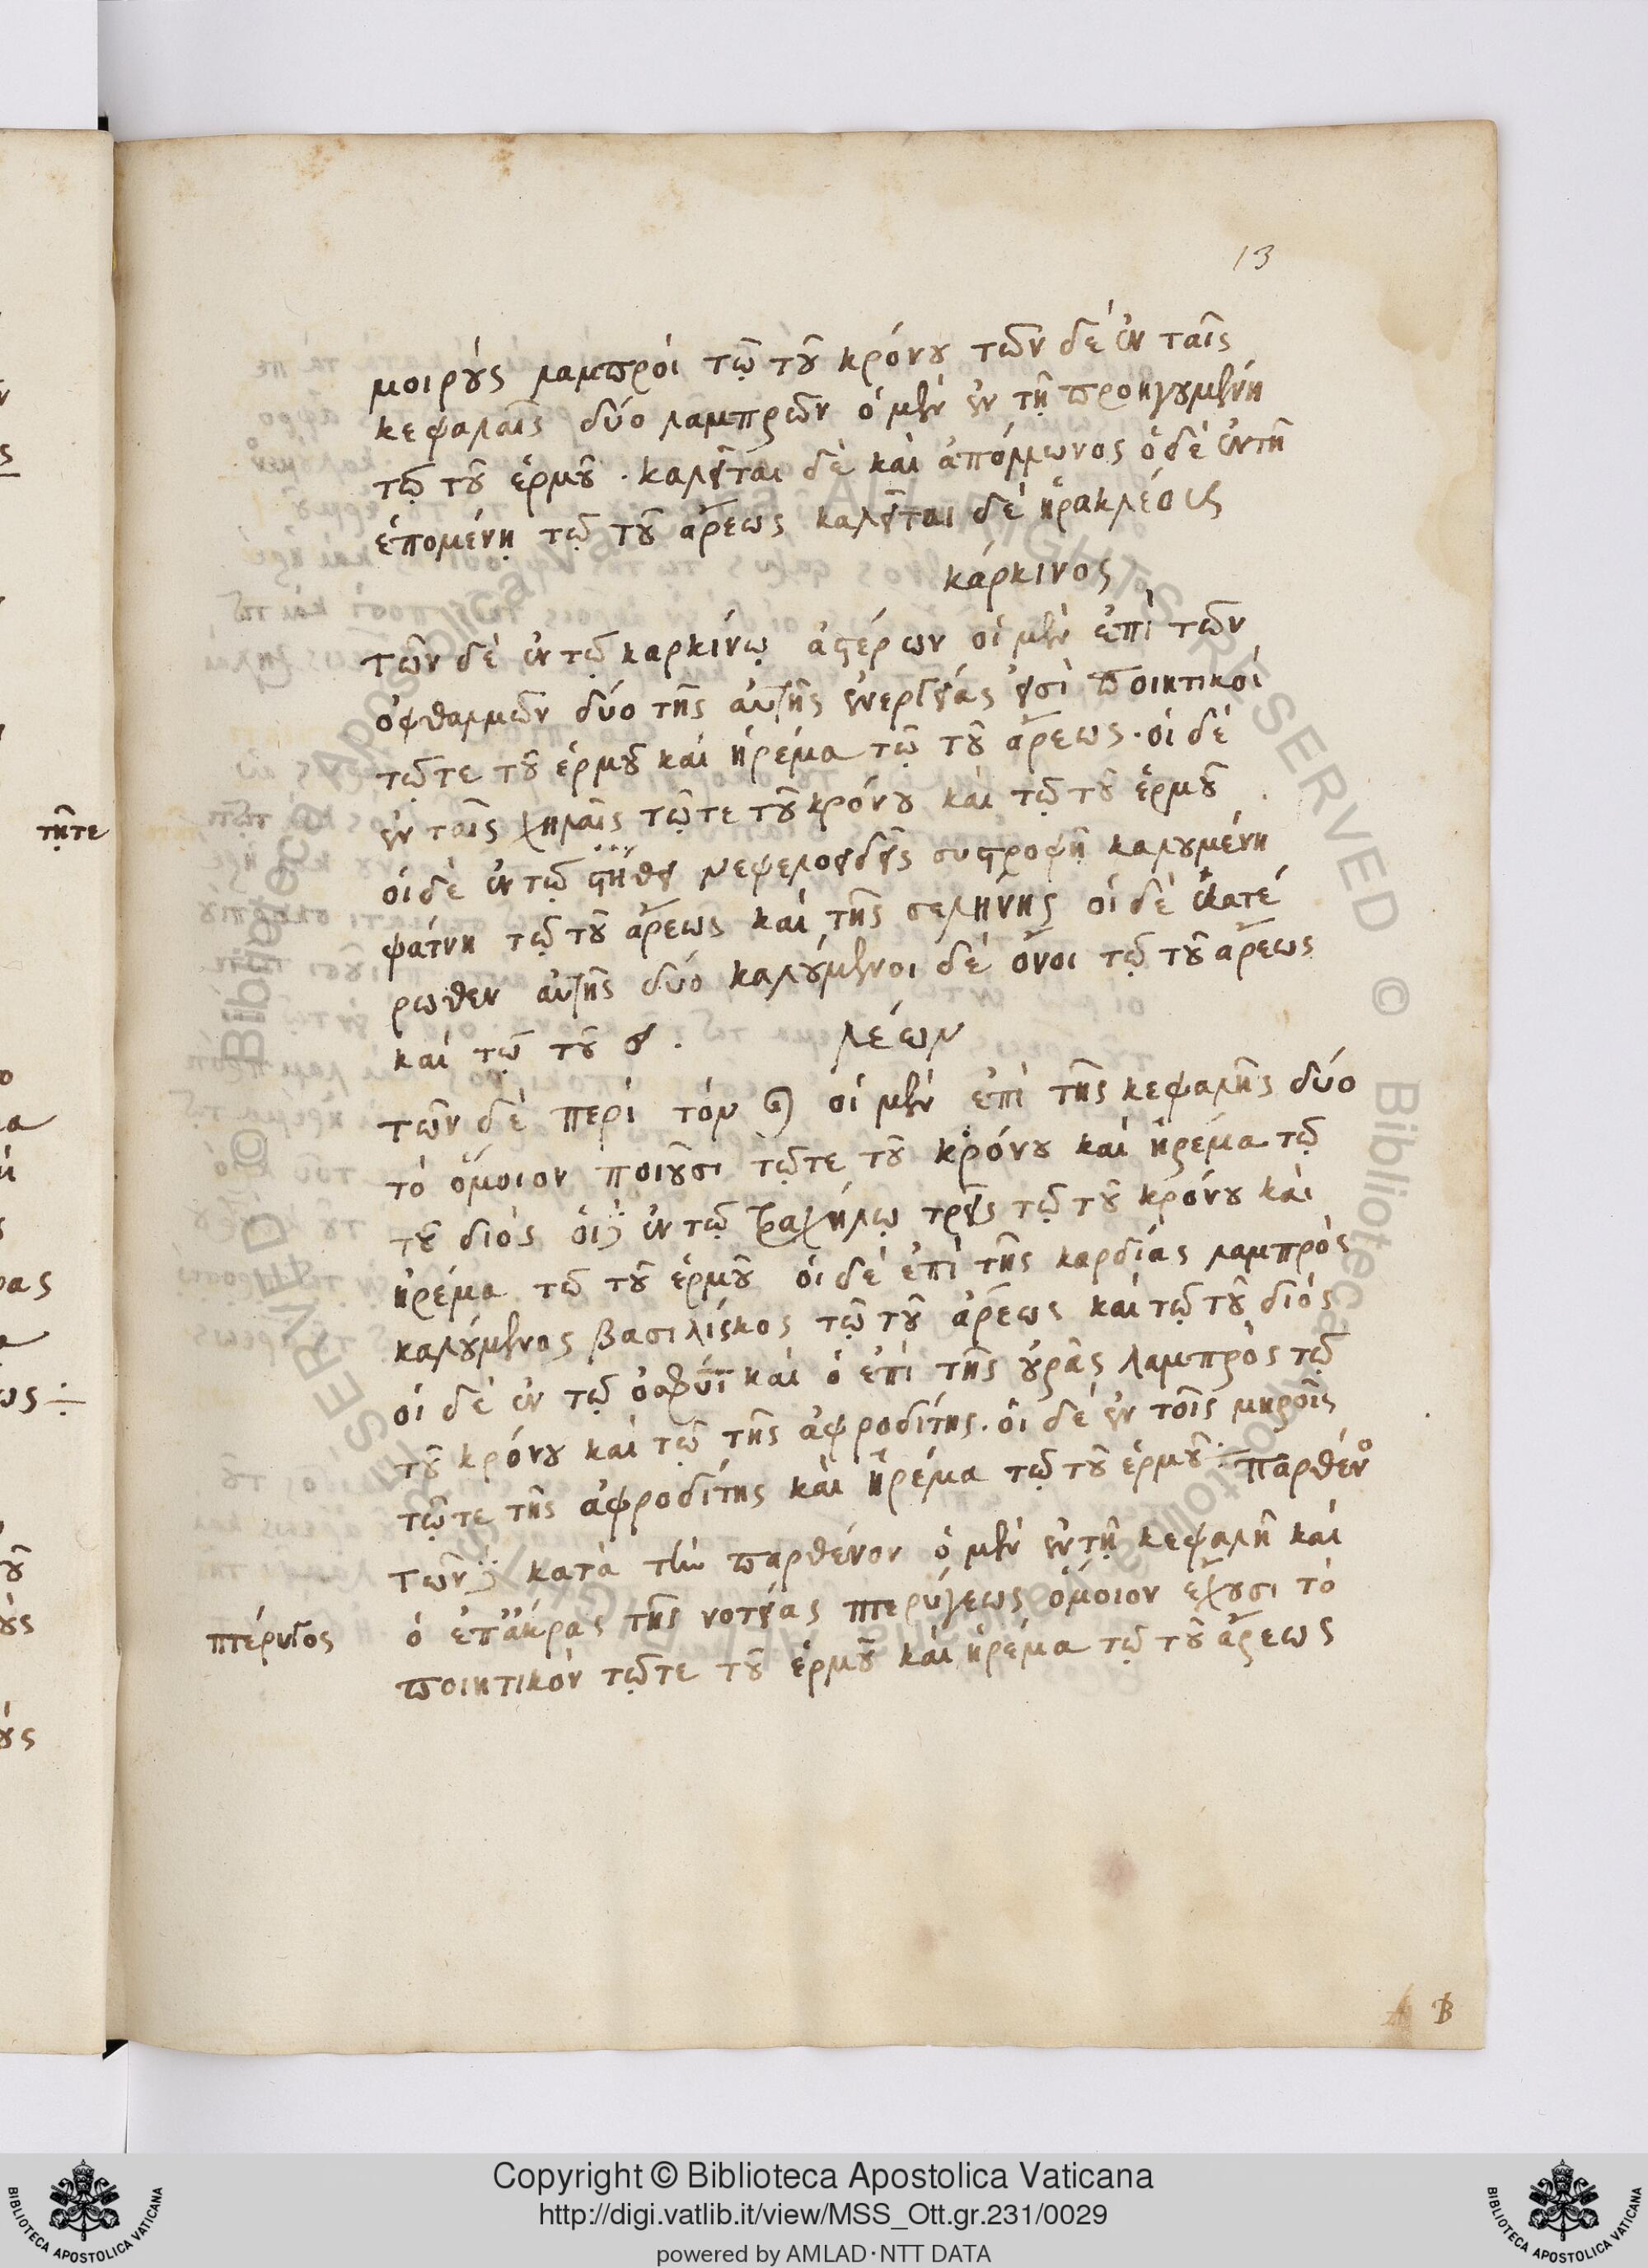 13
μοιρούς λαμπροί τῷ τοῦ κρόνου τῶν δὲ ἐν ταῖς
κεφαλαῖς δύο λαμπρῶν ὁ μὲν ἐν τῇ προηγουμένη
τῷ τοῦ ἑρμοῦ · καλεῖται δὲ καὶ ἀπόλλωνος ὁ δὲ ἐν τῆ
ἑπομένῃ τῷ τοῦ ἄρεως καλεῖται δὲ ἡρακλέους
κάρκινος
τῶν δὲ ἐν τῷ καρκίνῳ ἀστέρων οἱ μὲν ἐπὶ τῶν
ὀφθαλμῶν δύο τῆς αὐτῆς ἐνεργείας εἰσὶ ποιητικοί
τῷ τε τοῦ ἑρμοῦ καὶ ἠρέμα τῷ τοῦ ἄρεως · οἱ δὲ
ἐν ταῖς χηλαῖς τῷ τε τοῦ κρόνου καὶ τῷ τοῦ ἑρμοῦ
οἱ δὲ ἐν τῷ στήθει νεφελοειδεῖς συστροφῆ καλουμένη
φάτνη τῷ τοῦ ἄρεως καὶ τῆς σελήνης οἱ δὲ ἑκατέ
ρωθεν αὐτῆς δύο καλούμενοι δὲ ὄνοι τῷ τοῦ ἄρεως
καὶ τῷ τοῦ . λέων
τῶν δὲ περὶ τόν ♌ οἱ μὲν ἐπὶ τῆς κεφαλῆς δύο
τὸ ὅμοιον ποιοῦσι τῷ τε τοῦ κρόνου καὶ ἠρέμα τῷ
τοῦ διός οἱ δὲ ἐν τῷ τραχήλῳ τρεῖς τῷ τοῦ κρόνου καὶ
ἠρέμα τῷ τοῦ ἑρμοῦ οἱ δὲ ἐπὶ τῆς καρδίας λαμπρὸς
καλούμενος βασιλίσκος τῷ τοῦ ἄρεως καὶ τῷ τοῦ διός
οἱ δὲ ἐν τῷ ὀσφύϊ καὶ ὁ ἐπὶ τῆς οὐρᾶς λαμπρὸς τῷ
τοῦ κρόνου καὶ τῷ τῆς ἀφροδίτης · οἱ δὲ ἐν τοῖς μηροῖς
τῷ τε τῆς ἀφροδίτης καὶ ἠρέμα τῷ τοῦ ἑρμοῦ : παρθένο
τῶν δὲ κατὰ τὴν παρθένον ὁ μὲν ἐν τῇ κεφαλῆ καὶ
πτέρυγος ὁ ἐπ' ἄκρας τῆς νοτείας πτερύγεως ὅμοιον ἔχουσι τὸ
ποιητικὸν τῷ τε τοῦ ἑρμοῦ καὶ ἠρέμα τῷ τοῦ ἄρεως
τῆτε
B
Copyright © Biblioteca Apostolica Vaticana
http://digi.vatlib.it/view/MSS_Ott.gr.231/0029
powered by AMLAD·NTT DATA
BIBLIOTECA APOSTOLICA VATICANA
BIBLIOTECA APOSTOLICA VATICANA